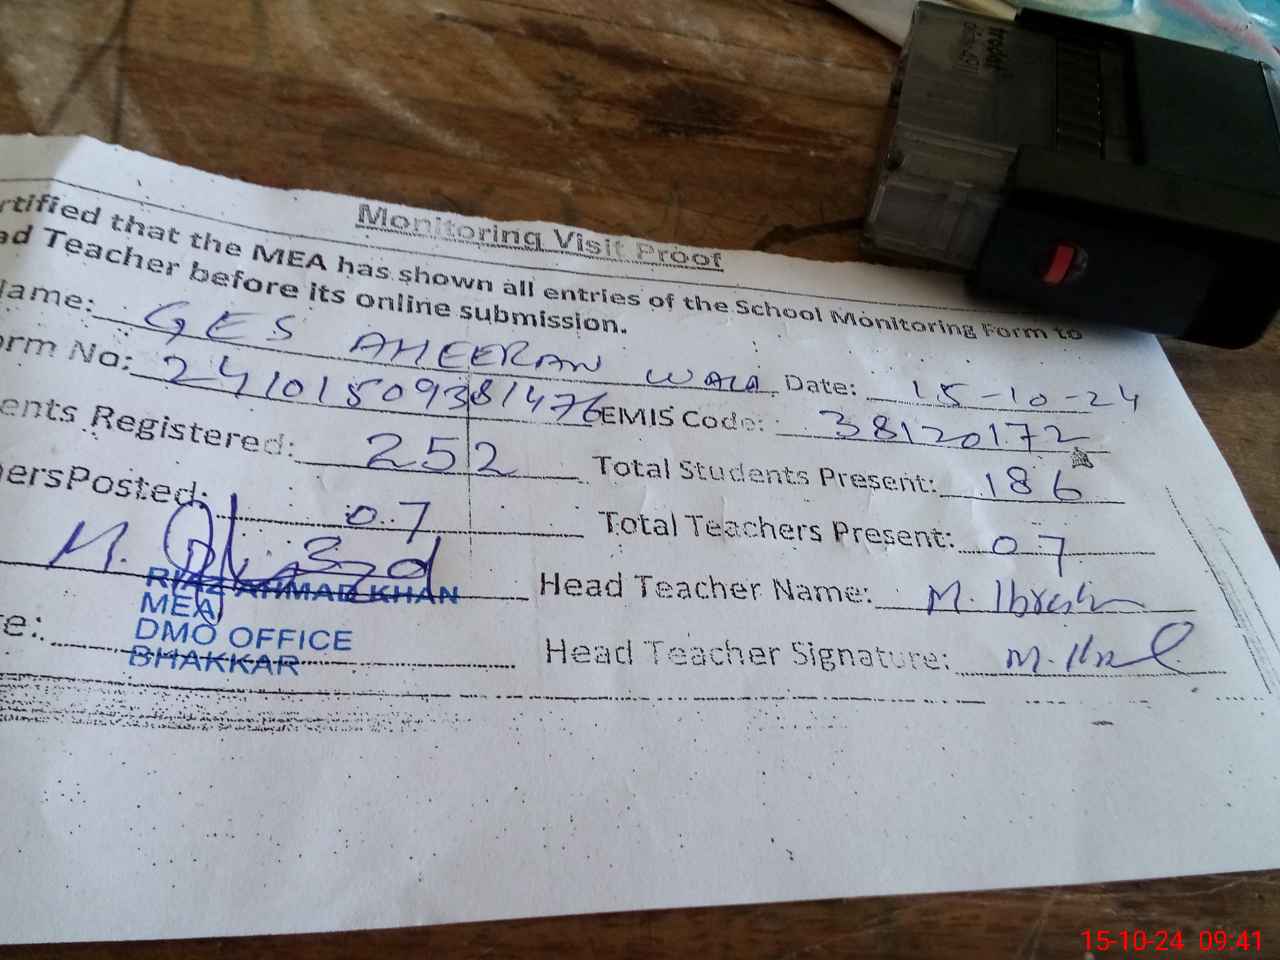 Monitoring Visit Proof
rtified that the MEA has shown all entries of the School Monitoring Form to
ad Teacher before its online submission.
Name: GES AHEERAN WALA Date: 15-10-24
orm No: 24101509381476 EMIS Code: 38120172
ents Registered: 252 Total Students Present: 186
hersPosted: 07 Total Teachers Present: 07
M. Head Teacher Name: M. Ibrahim
RIAZ AHMAD KHAN
MEA
DMO OFFICE
BHAKKAR
re: Head Teacher Signature:
trodat
15-10-24 09:41